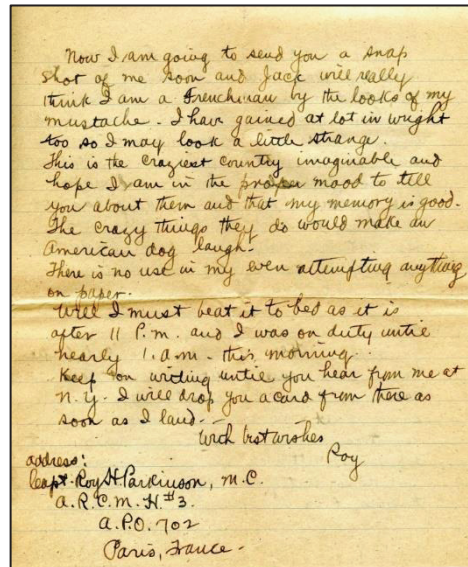 Now I am going to send you a snap
shot of me soon and Jack will really
think I am a Frenchman by the looks of my
mustache - I have gained at lot in wright
too so I may look a little strange.
This is the craziest country imaginable and
hope I am in the proper mood to tell
you about them and that my memory is good.
The crazy things they do would make an
American dog laugh.
There is no use in my even attempting anything
on paper.
Well I must beat it to bed as it is
after 11 P.m. and I was on duty until
nearly 1. a.m. this morning.
Keep on writing until you hear from me at
N.Y. I will drop you a card from there as
soon as I land. -
With best wishes
Roy
address:
Capt. Roy H Parkinson, M.C.
A.R.C.M.H #3.
A.P.O. 702
Paris, France -